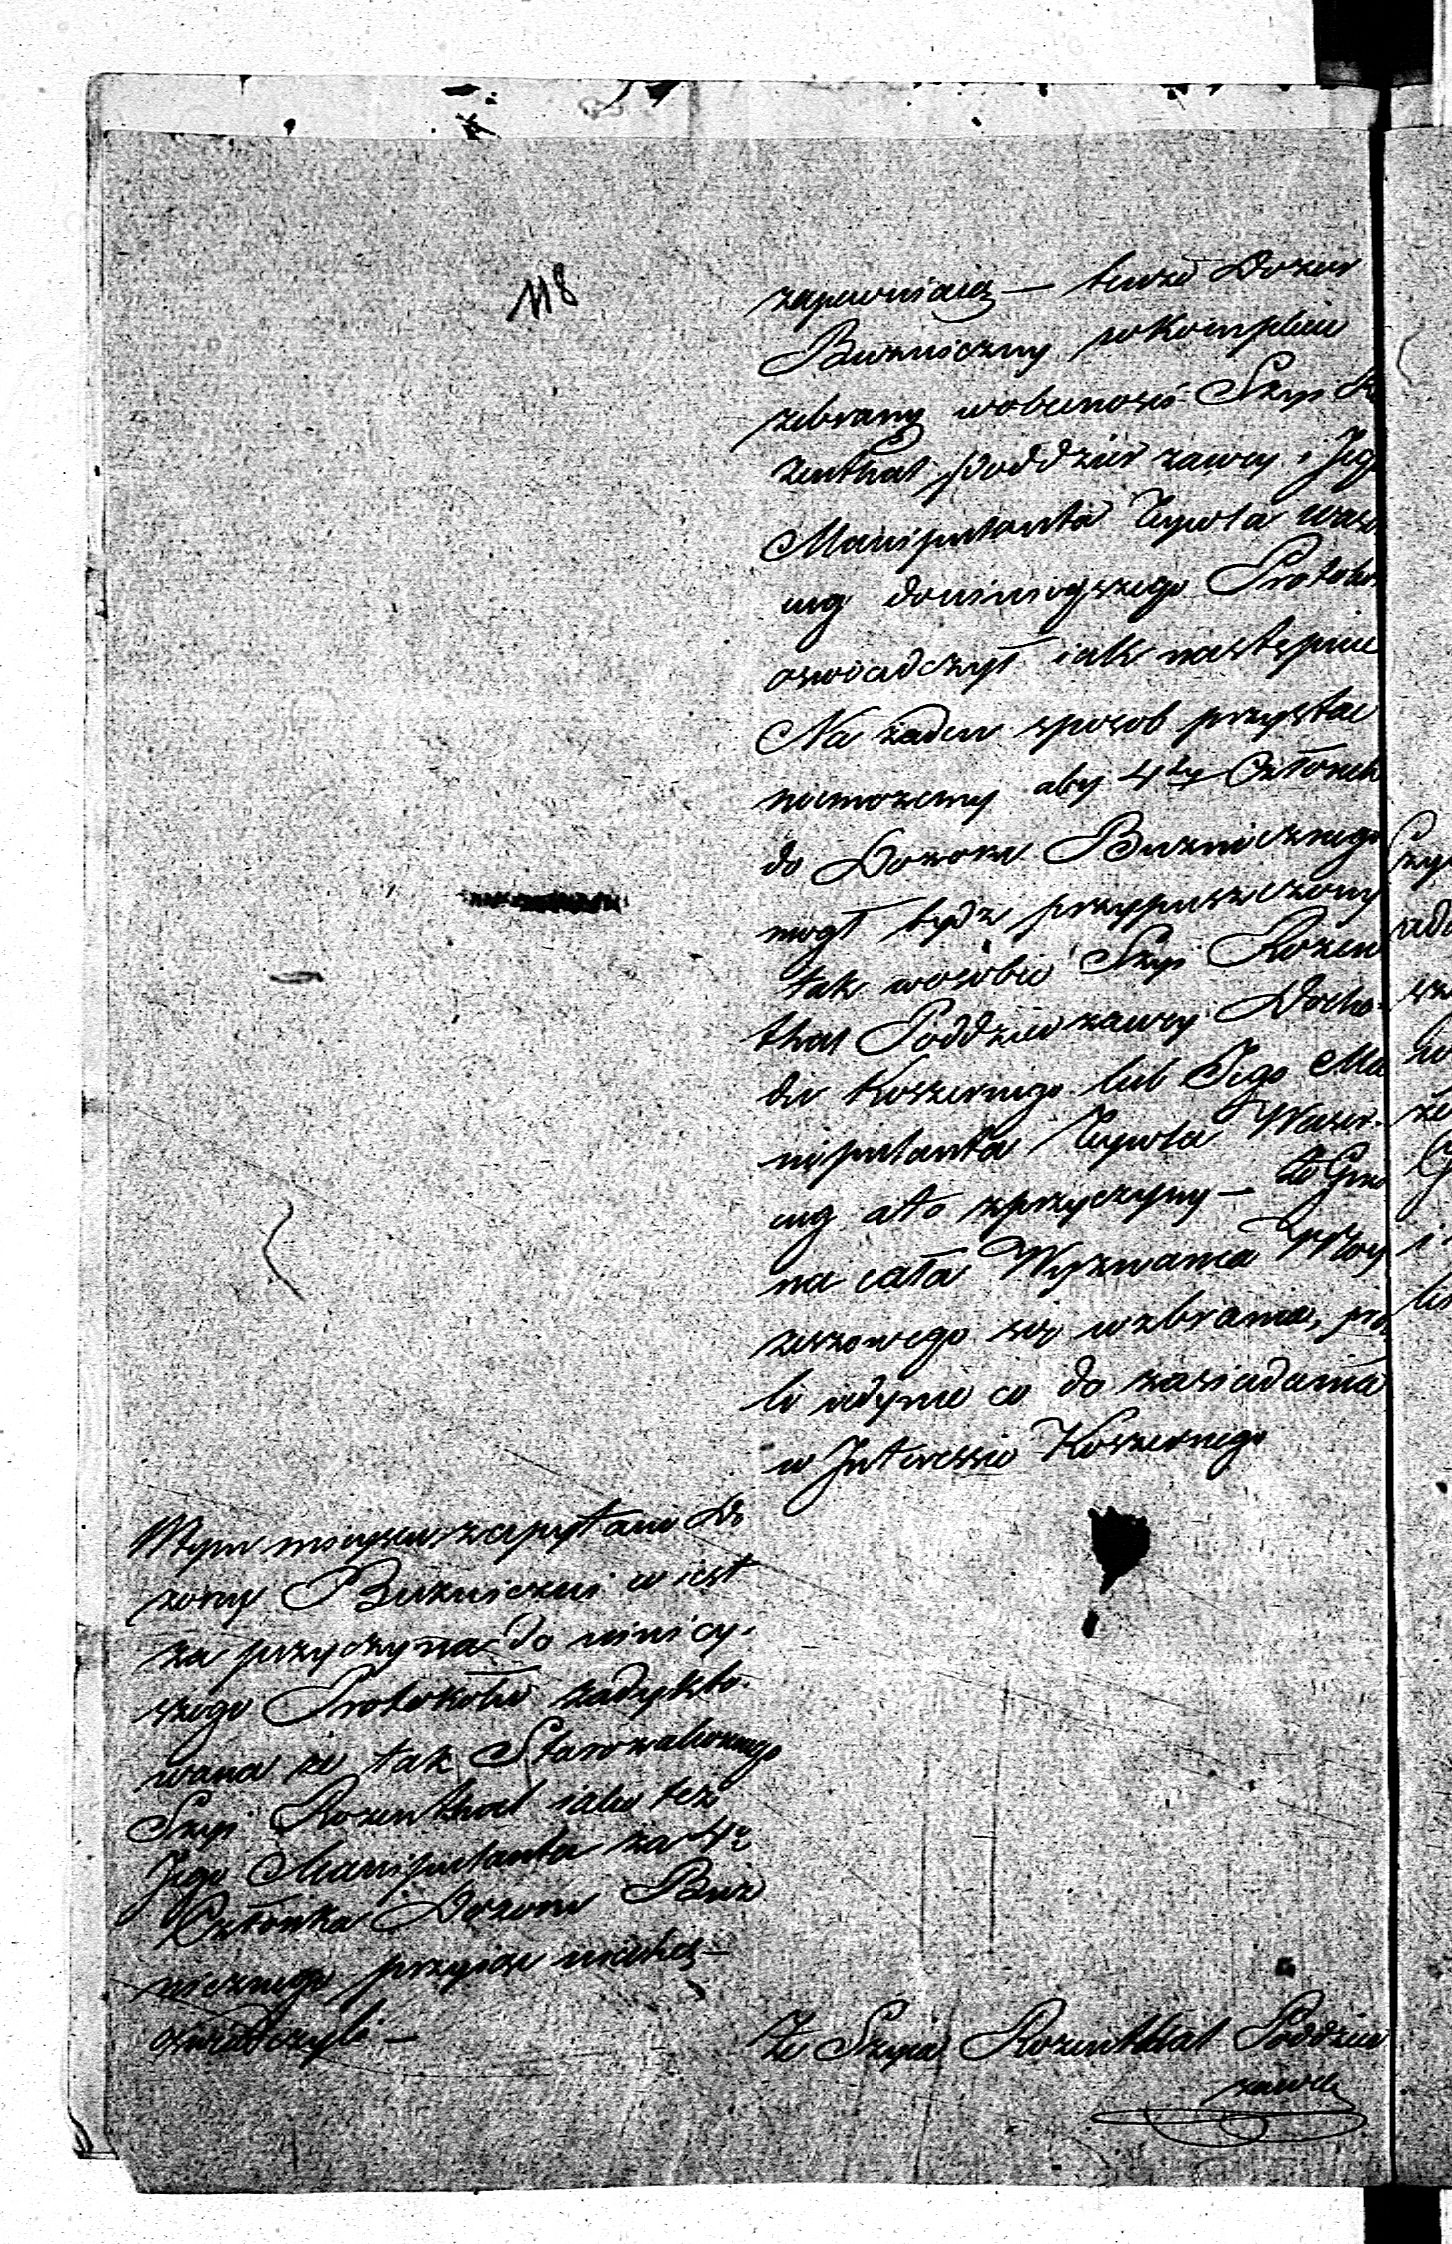 118
zapewniaią — tenże Dozor
Bużniczny wkomplecie
zebrany wobecności Szyi Ro
zenthal Poddzierzawcy i Jego
Manipulanta
do niniejszego Protokołu
oswiadczył iak następuie
Na żaden sposob przystac
niemożemy aby 4ty Członek
do Dozoru Bużnicznego
mogł bydz przypuszczony
tak wosobie Szyi Rozen
thal Poddzierzawcy Docho-
du Koszernego lub Jego Ma
nipulanta
a to zprzyczyny — że
na cała Wyznania Moy
zeszowego się wzbrania,
li iedynie co do zasiadania
w Interessie Koszernego
Wtym mieyscu zapytani Do
zorcy Bużniczni co iest
za przyczyna do ninicy-
szego Protokołu zadykto-
wana że tak Starozakonnego
Szyi Rozenthal iako też
Jego Manipulanta za 4o
Członka Dozoru Buż
nicznego przyiąc niechcą —
oswiadczyli —
Że Szyia Rozenthal Poddzier
zawca